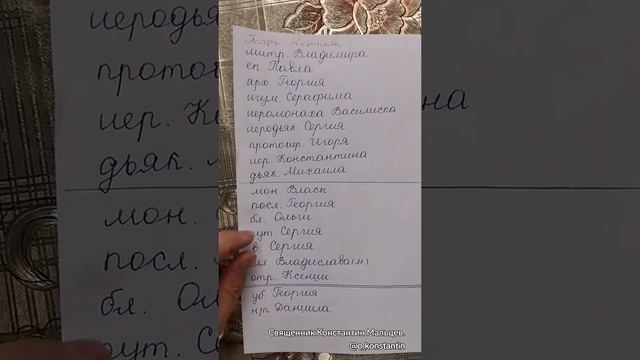 Патр. Кирилла
митр. Владимира
еп Павла
арх Георгия
игум. Серафима
иеромонаха Василиска
иеродьяк. Сергия
протоиер. Игоря
иер. Константина
дьяк. Михаила
мон. Власи
посл. Георгия
бл. Ольги
пут. Сергия
в Сергия
мл Владислава(м)
отр. Ксении
уб Георгия
н/п Даниила
Священник Константин Мальцев.
@o.konstantin